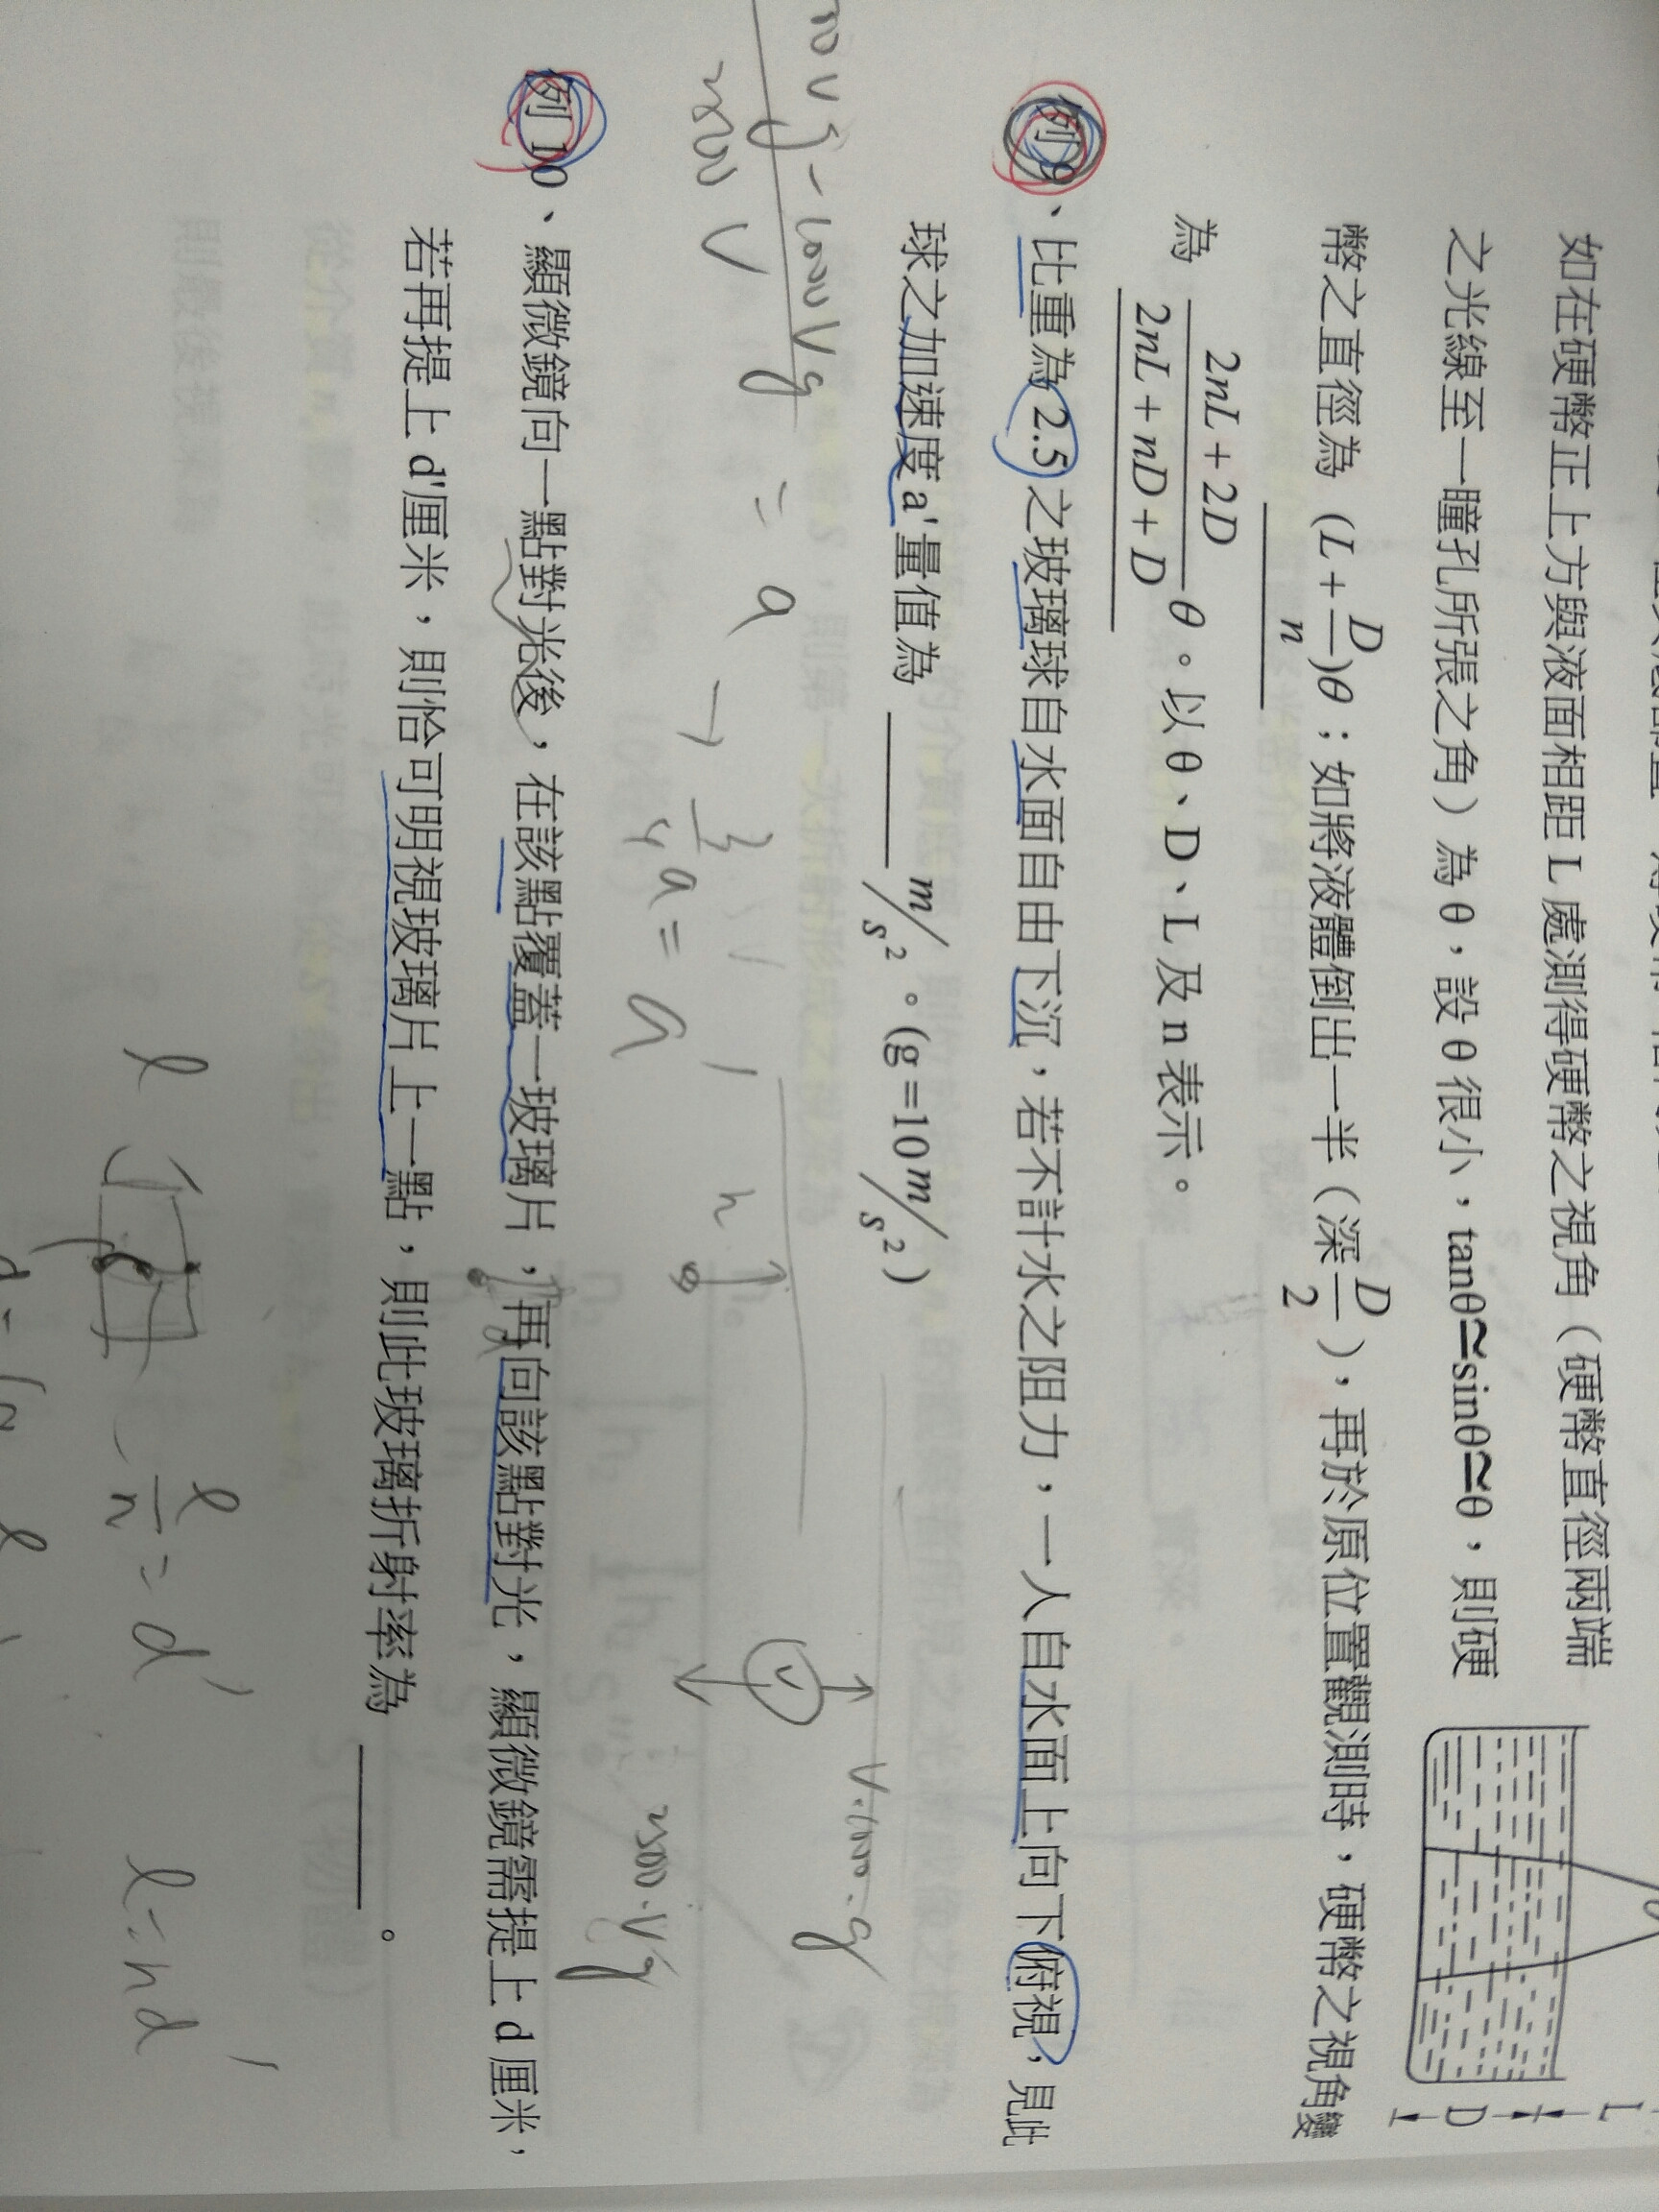 如在硬幣正上方與液面相距 L 處測得硬幣之視角（硬幣直徑兩端
之光線至一瞳孔所張之角）為 θ，設 θ 很小，tanθ≅sinθ≅θ，則硬
幣之直徑為 (L + D/n)θ；如將液體倒出一半（深 D/2），再於原位置觀測時，硬幣之視角變
為 (2nL + 2D)/(2nL + nD + D) θ。以 θ、D、L 及 n 表示。
L
D
例 9、比重為 2.5 之玻璃球自水面自由下沉，若不計水之阻力，一人自水面上向下俯視，見此
球之加速度 a'量值為 ______ m/s²。(g=10 m/s²)
V·1000·g
2500·Vg
2500 V
= a
例 10、顯微鏡向一點對光後，在該點覆蓋一玻璃片，再向該點對光，顯微鏡需提上 d 厘米，
若再提上 d'厘米，則恰可明視玻璃片上一點，則此玻璃折射率為 ______。
ℓ
ℓ/n = d'
ℓ = nd'